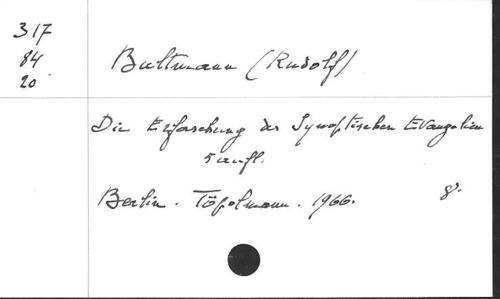 317
84
20
Bultmann (Rudolf)
Die Erforschung der Synoptischen Evangelien
5 aufl.
Berlin. Töpelmann. 1966. 8°.